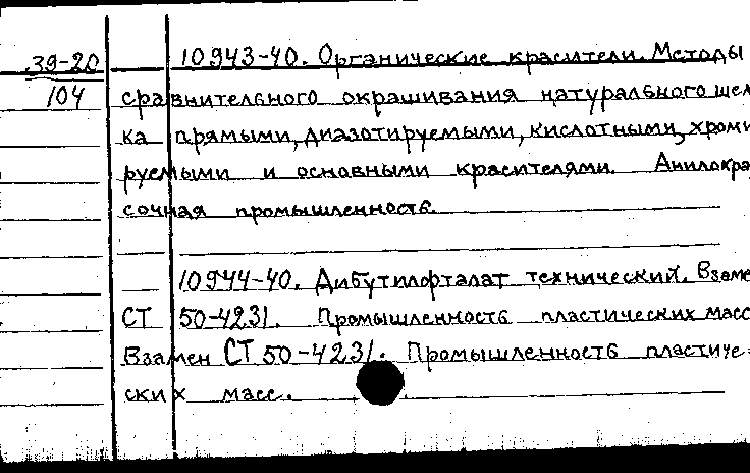 39-20 10943-40. Органические красители. Методы
104 сравнительного окрашивания натурального шел
ка прямыми, диазотируемыми, кислотными, хроми
руемыми и основными красителями. Анилокра
сочная промышленность.
10944-40. Дибутилфталат технический. Взаме
СТ 50-4231. Промышленность пластических масс
Взамен СТ 50-4231. Промышленность пластиче-
ских масс.